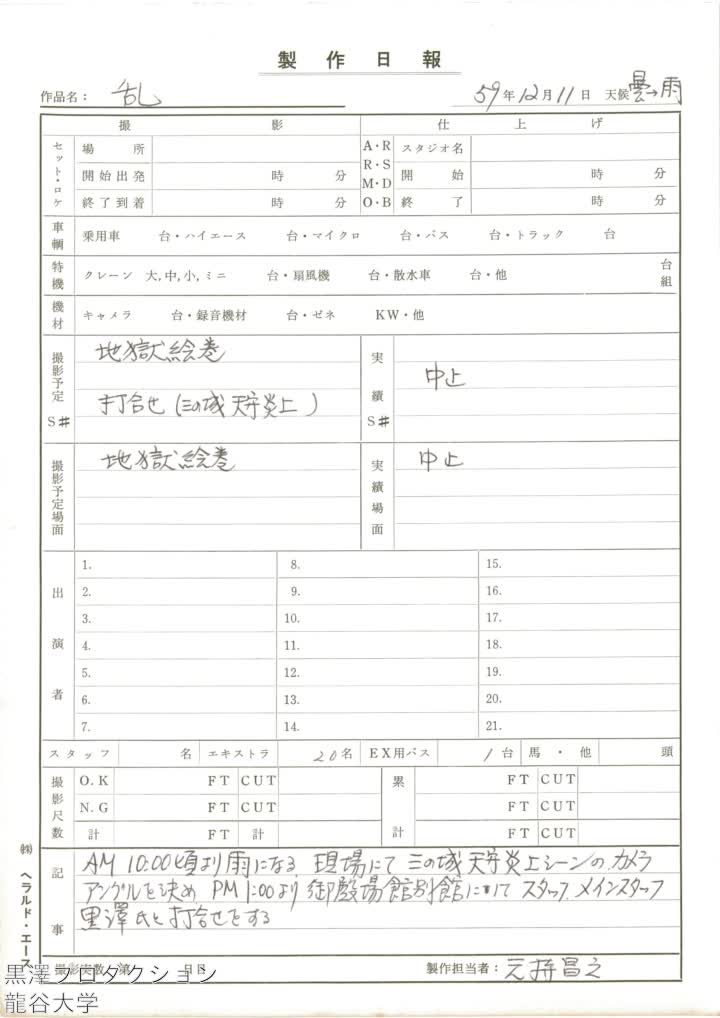 製作日報
作品名： 乱
59年12月11日 天候 曇→雨
撮影 仕上げ
セット・ロケ 場所 A・R スタジオ名
開始出発 時 分 R・S 開始 時 分
M・D
終了到着 時 分 O・B 終了 時 分
車輌 乗用車 台・ハイエース 台・マイクロ 台・バス 台・トラック 台
特機 クレーン 大,中,小,ミニ 台・扇風機 台・散水車 台・他 台組
機材 キャメラ 台・録音機材 台・ゼネ KW・他
撮影予定S# 地獄絵巻 実績S# 中止
打合せ(三の城 天守炎上)
撮影予定場面 地獄絵巻 実績場面 中止
出演者
1. 8. 15.
2. 9. 16.
3. 10. 17.
4. 11. 18.
5. 12. 19.
6. 13. 20.
7. 14. 21.
スタッフ 名 エキストラ 20名 EX用バス 1台 馬・他 頭
撮影尺数 O.K FT CUT 累計 FT CUT
N.G FT CUT FT CUT
計 FT 計 FT CUT
記事 AM 10:00頃より雨になる 現場にて 三の城 天守炎上シーンの カメラ
アングルを決め PM 1:00より 御殿場館別館に於て スタッフ メインスタッフ
黒澤氏と打合せをする
撮影実数 第 日目 製作担当者： 元持昌之
㈱ ヘラルド・エース
黒澤プロダクション
龍谷大学